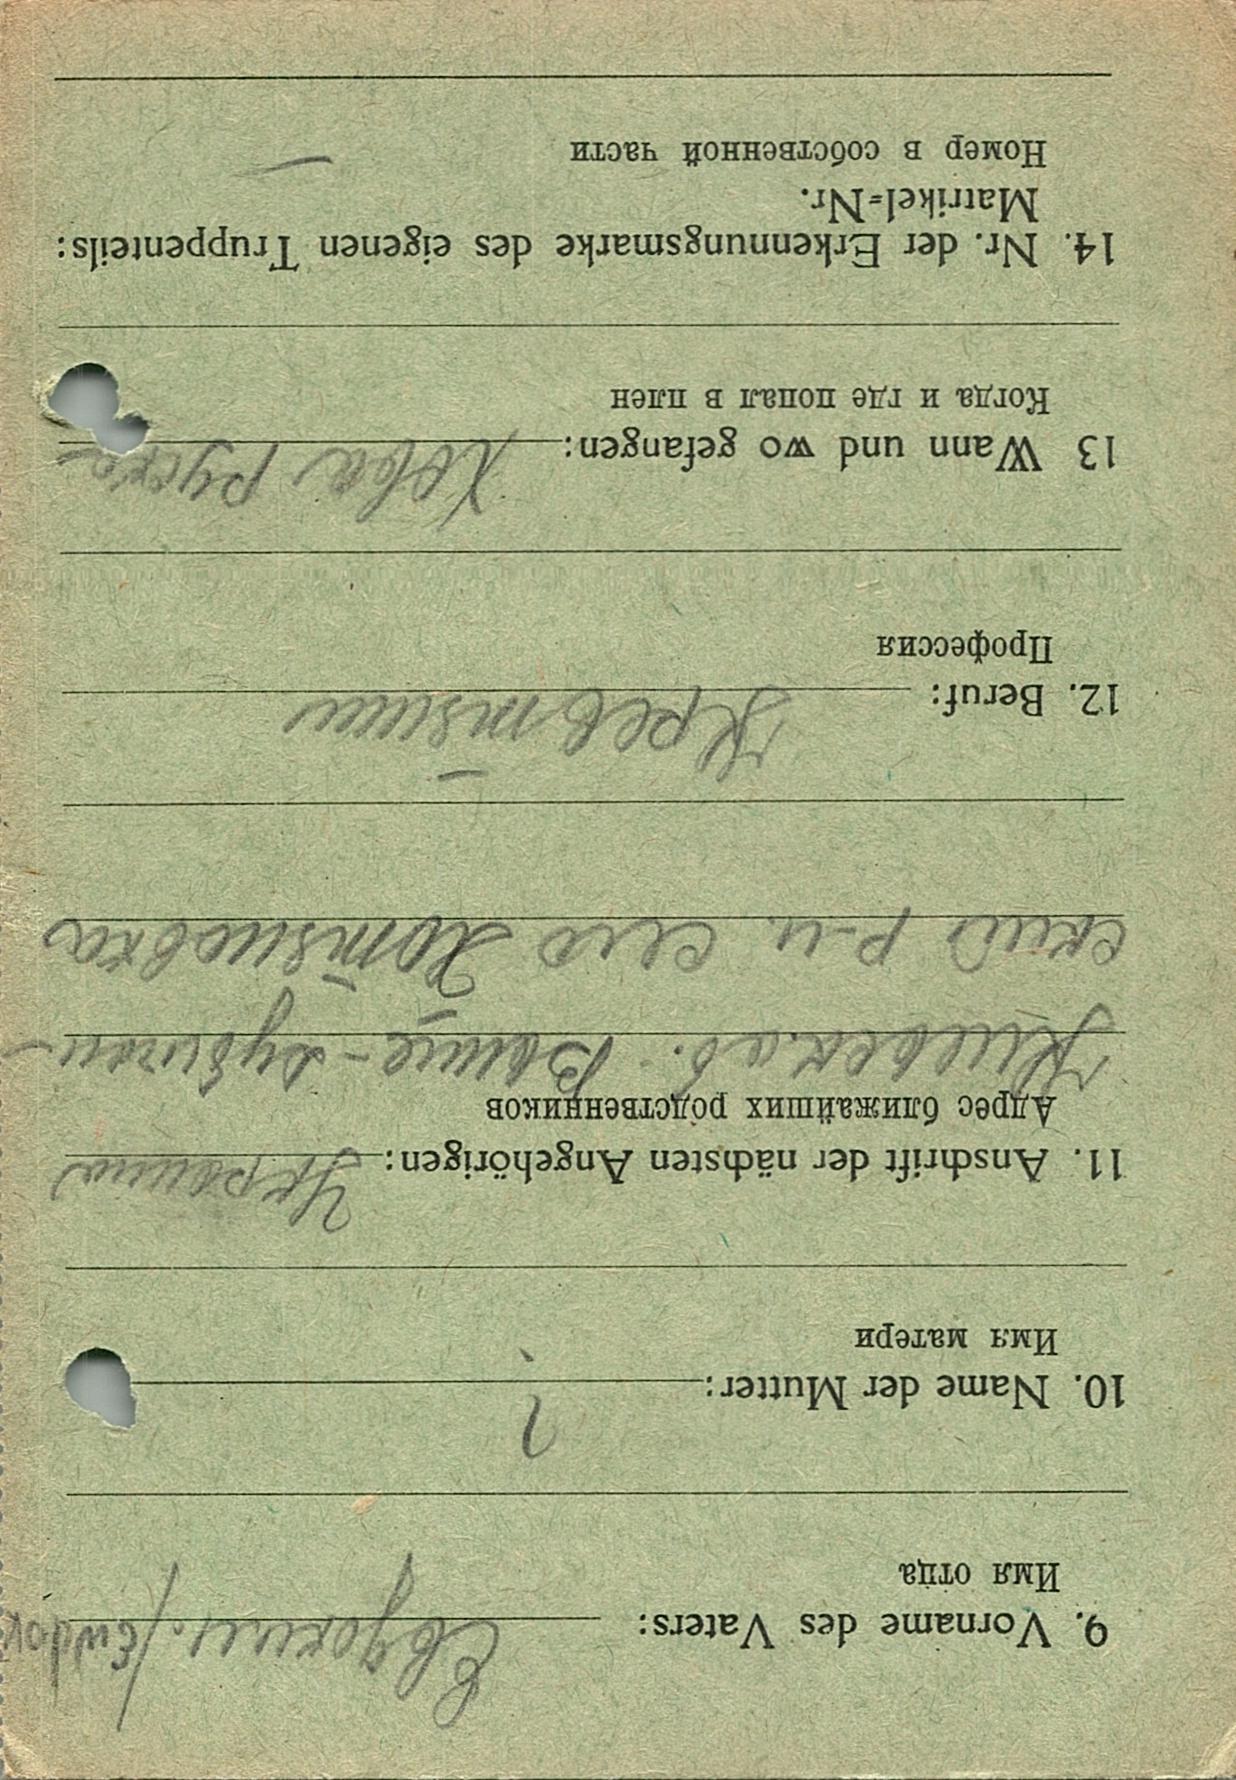 9. Vorname des Vaters: Евдоким. / Ewdok
Имя отца
10. Name der Mutter: ?
Имя матери
11. Anschrift der nächsten Angehörigen: Украина
Адрес ближайших родственников
Киевск. об. Выше-Дубечан-
ский р-н. село Хотяновка
12. Beruf:
Профессия
13 Wann und wo gefangen:
Когда и где попал в плен
14. Nr. der Erkennungsmarke des eigenen Truppenteils:
Matrikel-Nr.
Номер в собственной части —